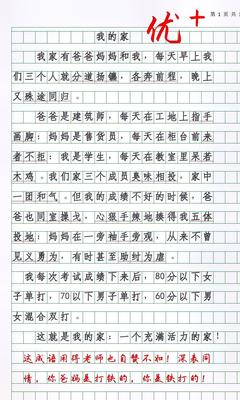 第 1 页 共
我的家
优+
我家有爸爸妈妈和我，每天早上我
们三个人就分道扬镳，各奔前程，晚上
又殊途同归。
爸爸是建筑师，每天在工地上指手
画脚；妈妈是售货员，每天在柜台前来
者不拒；我是学生，每天在教室里呆若
木鸡。我们家三个成员臭味相投，家中
一团和气。但我的成绩不好的时候，爸
爸也同室操戈，心狠手辣地揍得我五体
投地；妈妈在一旁袖手旁观，从来不曾
见义勇为，有时甚至助纣为虐。
我每次考试成绩下来后，80分以下女
子单打，70以下男子单打，60分以下男
女混合双打。
这就是我的家：一个充满活力的家！
这成语用得老师也自叹不如！深表同
情，你爸妈是打铁的，你是铁打的！